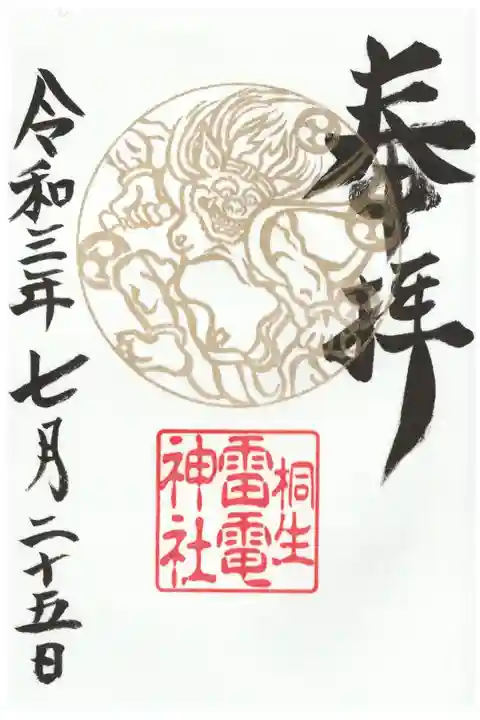 奉拝
桐生
雷電
神社
令和三年七月二十五日